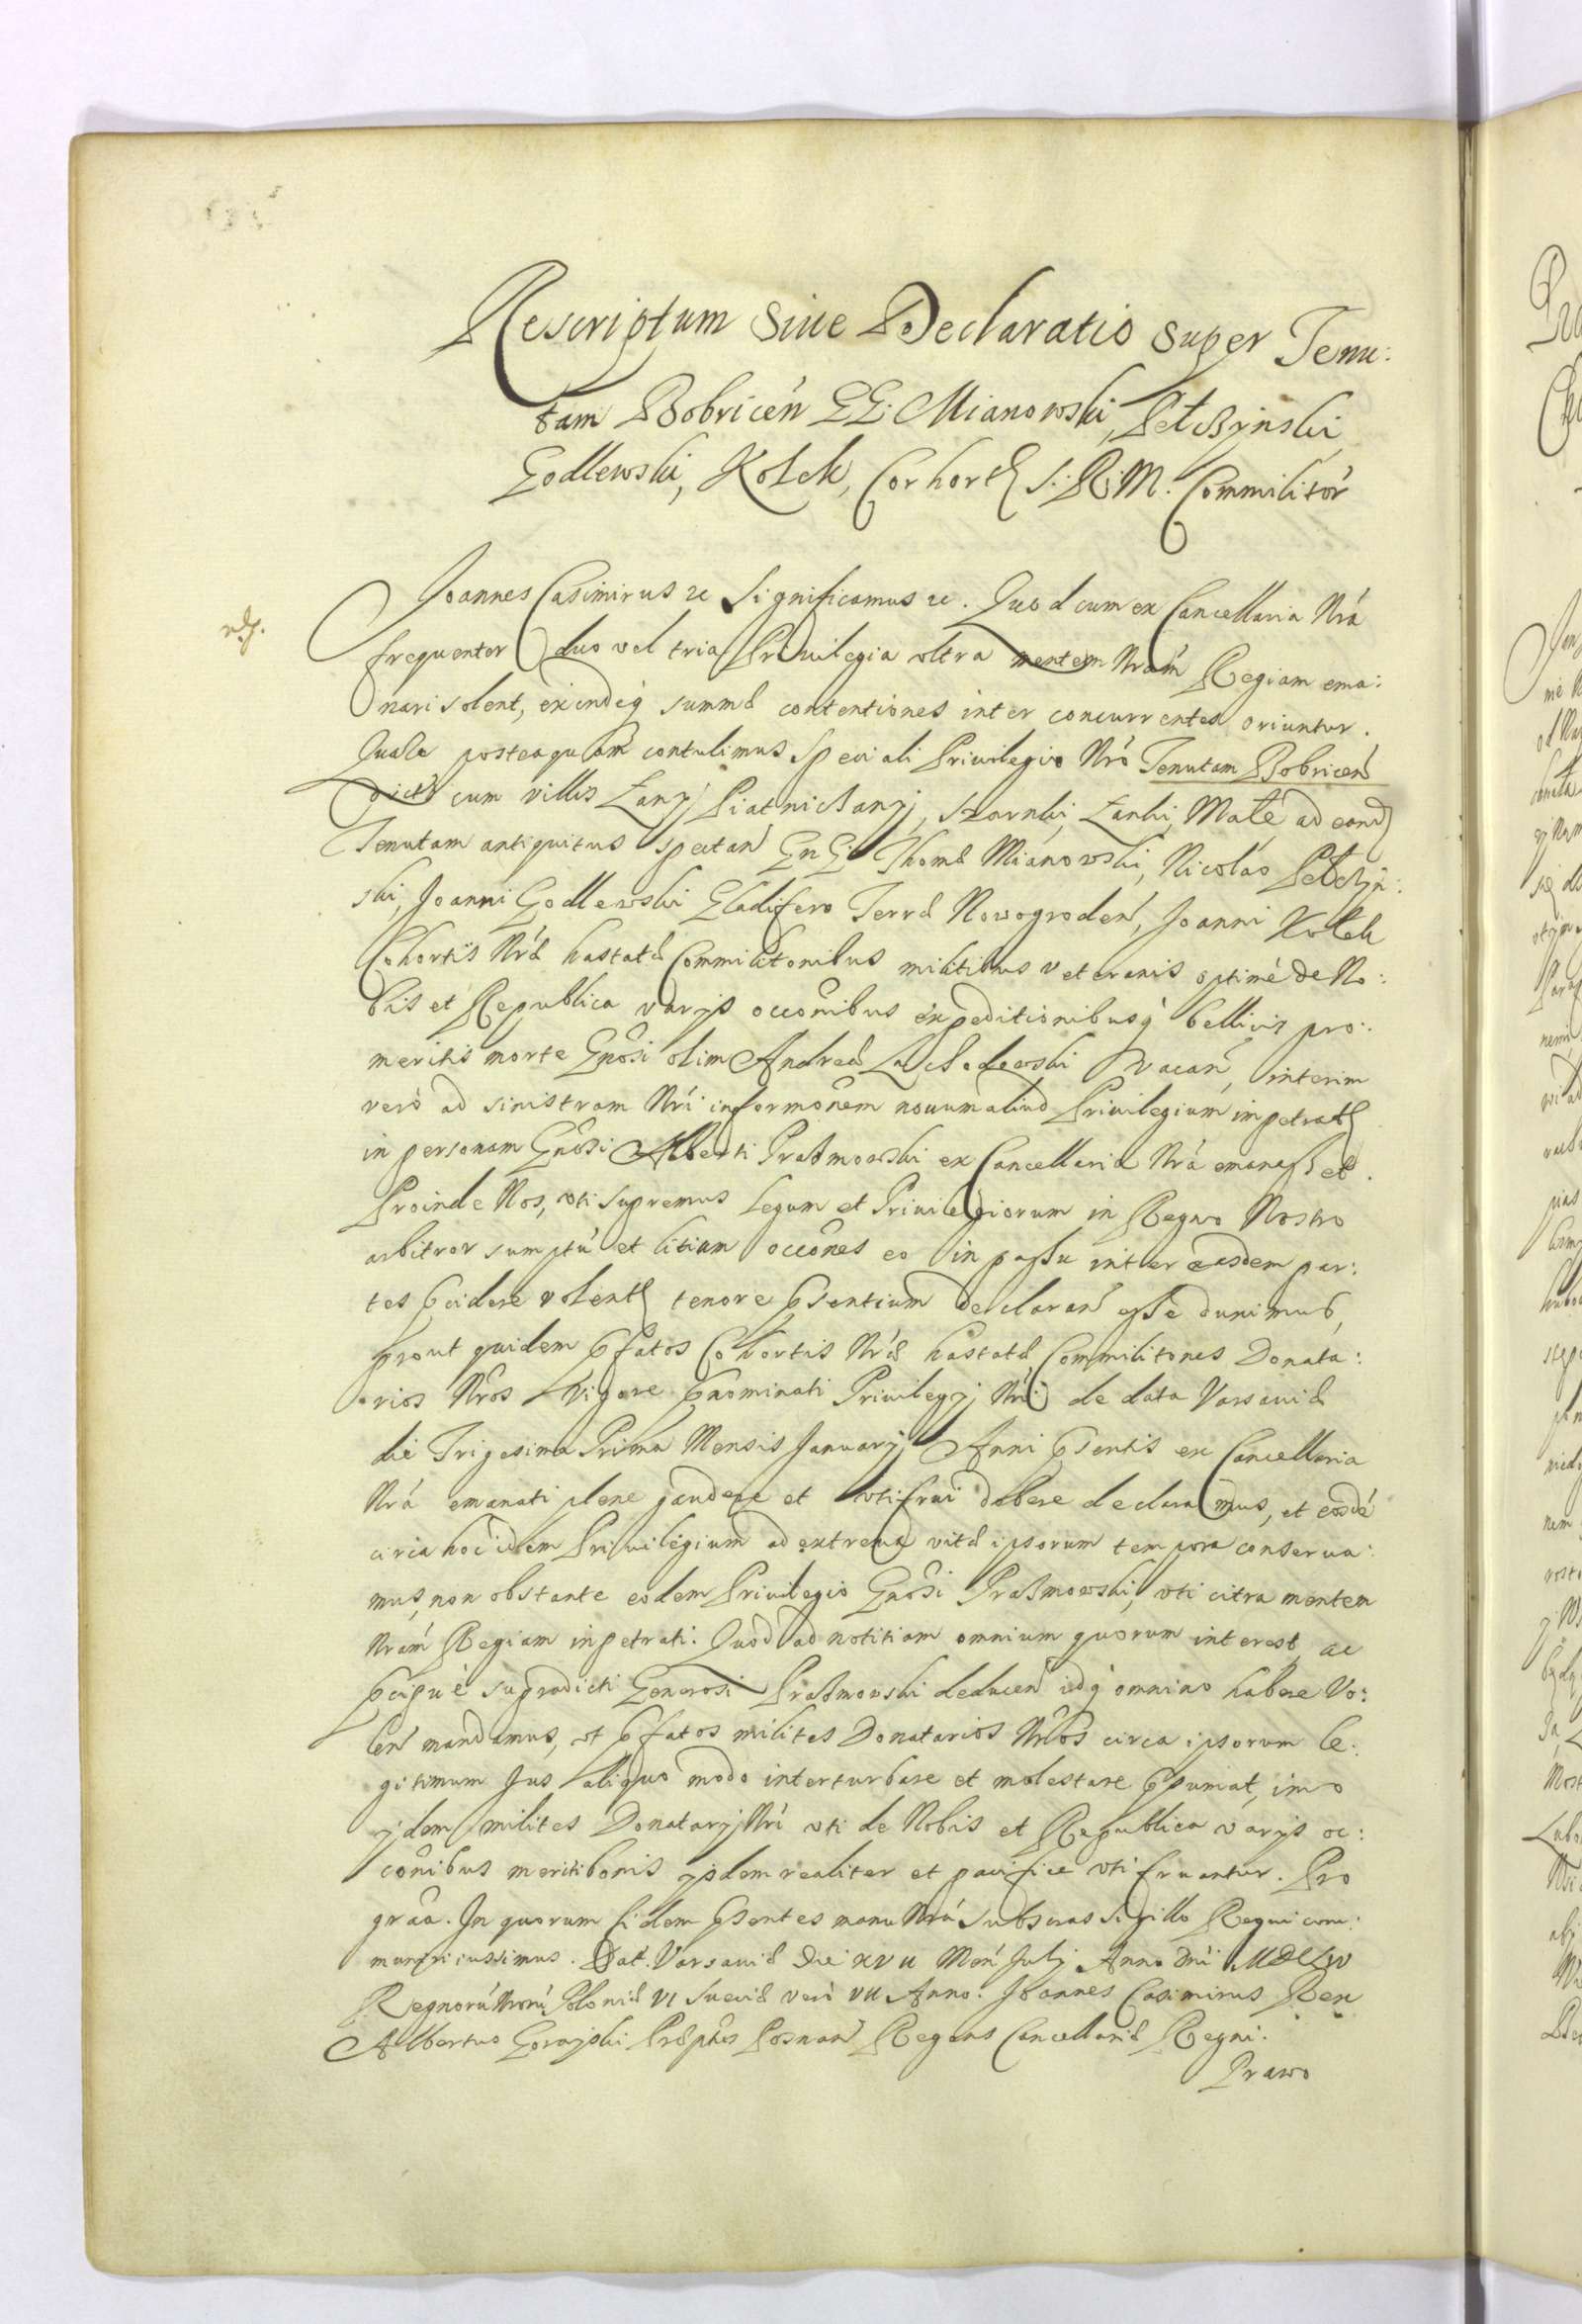 Rescriptum siue Declaratio super Tenu:
tam Bobricen̄ GG: Mianowski, Pełczynski
Godlewski, Kołek, Corhort S: R: M: Commilitor̄
Joannes Casimirus &c Significamus &c. Quod cum ex Cancellaria Nrã
frequenter duo vel tria Priuilegia vltra mentem Nram̃ Regiam ema:
nari solent, exindeq summæ contentiones inter concurrentes oriuntur.
Quale posteaquam contulimus speciali Priuilegio Nrõ Tenutam Bobricen̄
dictã cum villis Łany, Piatniczany, Czarnki, Łanki, Małe ad eand
Tenutam antiquitus spectan̄ GnG: Thomæ Mianowski, Nicolao Pełczyn:
ski, Joanni Godlewski Gladifero Terræ Nowogroden̄, Joanni Kołek
Cohortis Nræ hastatæ Commilitonibus militibus veteranis optimè de No:
bis et Republica varijs occõnibus expeditionibusq bellicis pro:
meritis morte Gnõsi olim Andreæ vacan̄, interim
verò ad sinistram Nri informõnem nouum aliud Priuilegium impetrat
in personam Gnõsi Alberti Prażmowski ex Cancellaria Nrã emanasset.
Proinde Nos, vti supremus legum et Priuilegiorum in Regno Nostro
arbitror sumptũ et litium occõnes eo in passu inter easdem par:
tes pcidere volent tenore psentium declaran̄ esse duximus,
prout quidem pfatos Cohortis Nræ hastatæ Commilitones Donata:
rios Nrõs vigore pnominati Priuilegij Nri de data Varsauiæ
die Trigesima Prima Mensis Januarij Anni psentis ex Cancellaria
Nrã emanati plene gaudere et vti frui debere declaramus, et eosdẽ
circa hoc idem Priuilegium ad extrema vitæ ipsorum tempora conserua:
mus, non obstante eodem Priuilegio Gnõsi Prażmowski, vti citra mentem
Nram̃ Regiam inpetrati. Quod ad notitiam omnium quorum interest, ac
pcipuè supradicti Generosi Prażmowski deducen̄ idq omnino habere Vo:
len̄ mandamus, vt pfatos milites Donatarios Nrõs circa ipsorum le:
gitimum Jus aliquo modo interturbare et molestare psumat, imo
ijdem milites Donatarij Nri vti de Nobis et Republica varijs oc:
cõnibus meriti bonis ijsdem realiter et pacifice vti fruantur. Pro
grãa. In quorum fidem psentes manu Nrã subscras sigillo Regni com:
muniri iussimus. Dat. Varsauiæ Die XVII Men̄ Julij Anno Dni MDCLIV
Regnorũ Nrorũ Poloniæ VI Sueciæ verò VII Anno. Joannes Casimirus Rex
Albertus Gorayski Præptus Posnan̄ Regens Cancellariæ Regni.
Prawo